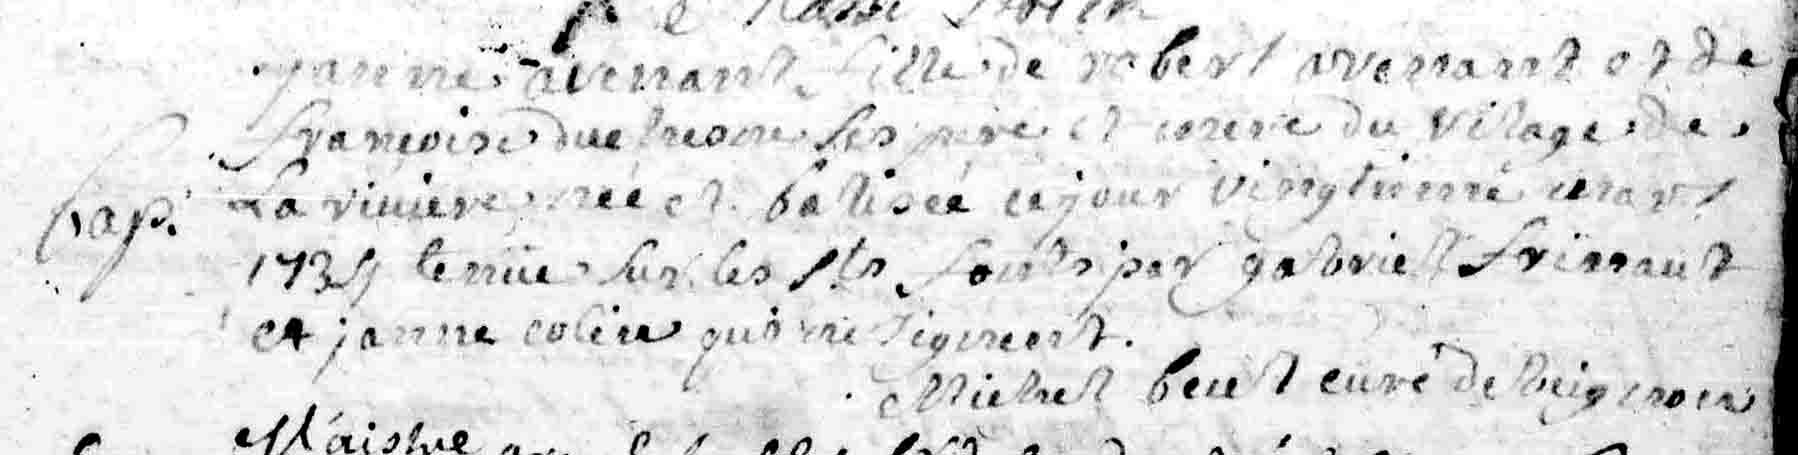 janne avenant fille de robert avenant et de
françoise duchesne ses pere et mere du vilage de
Bap. La riviere née et batisée ce jour vingtieme mars
1735 tenüe sur les sts fonts par gabriel frinault
et janne colin qui ne signent.
Michel beut curé de
Maistre